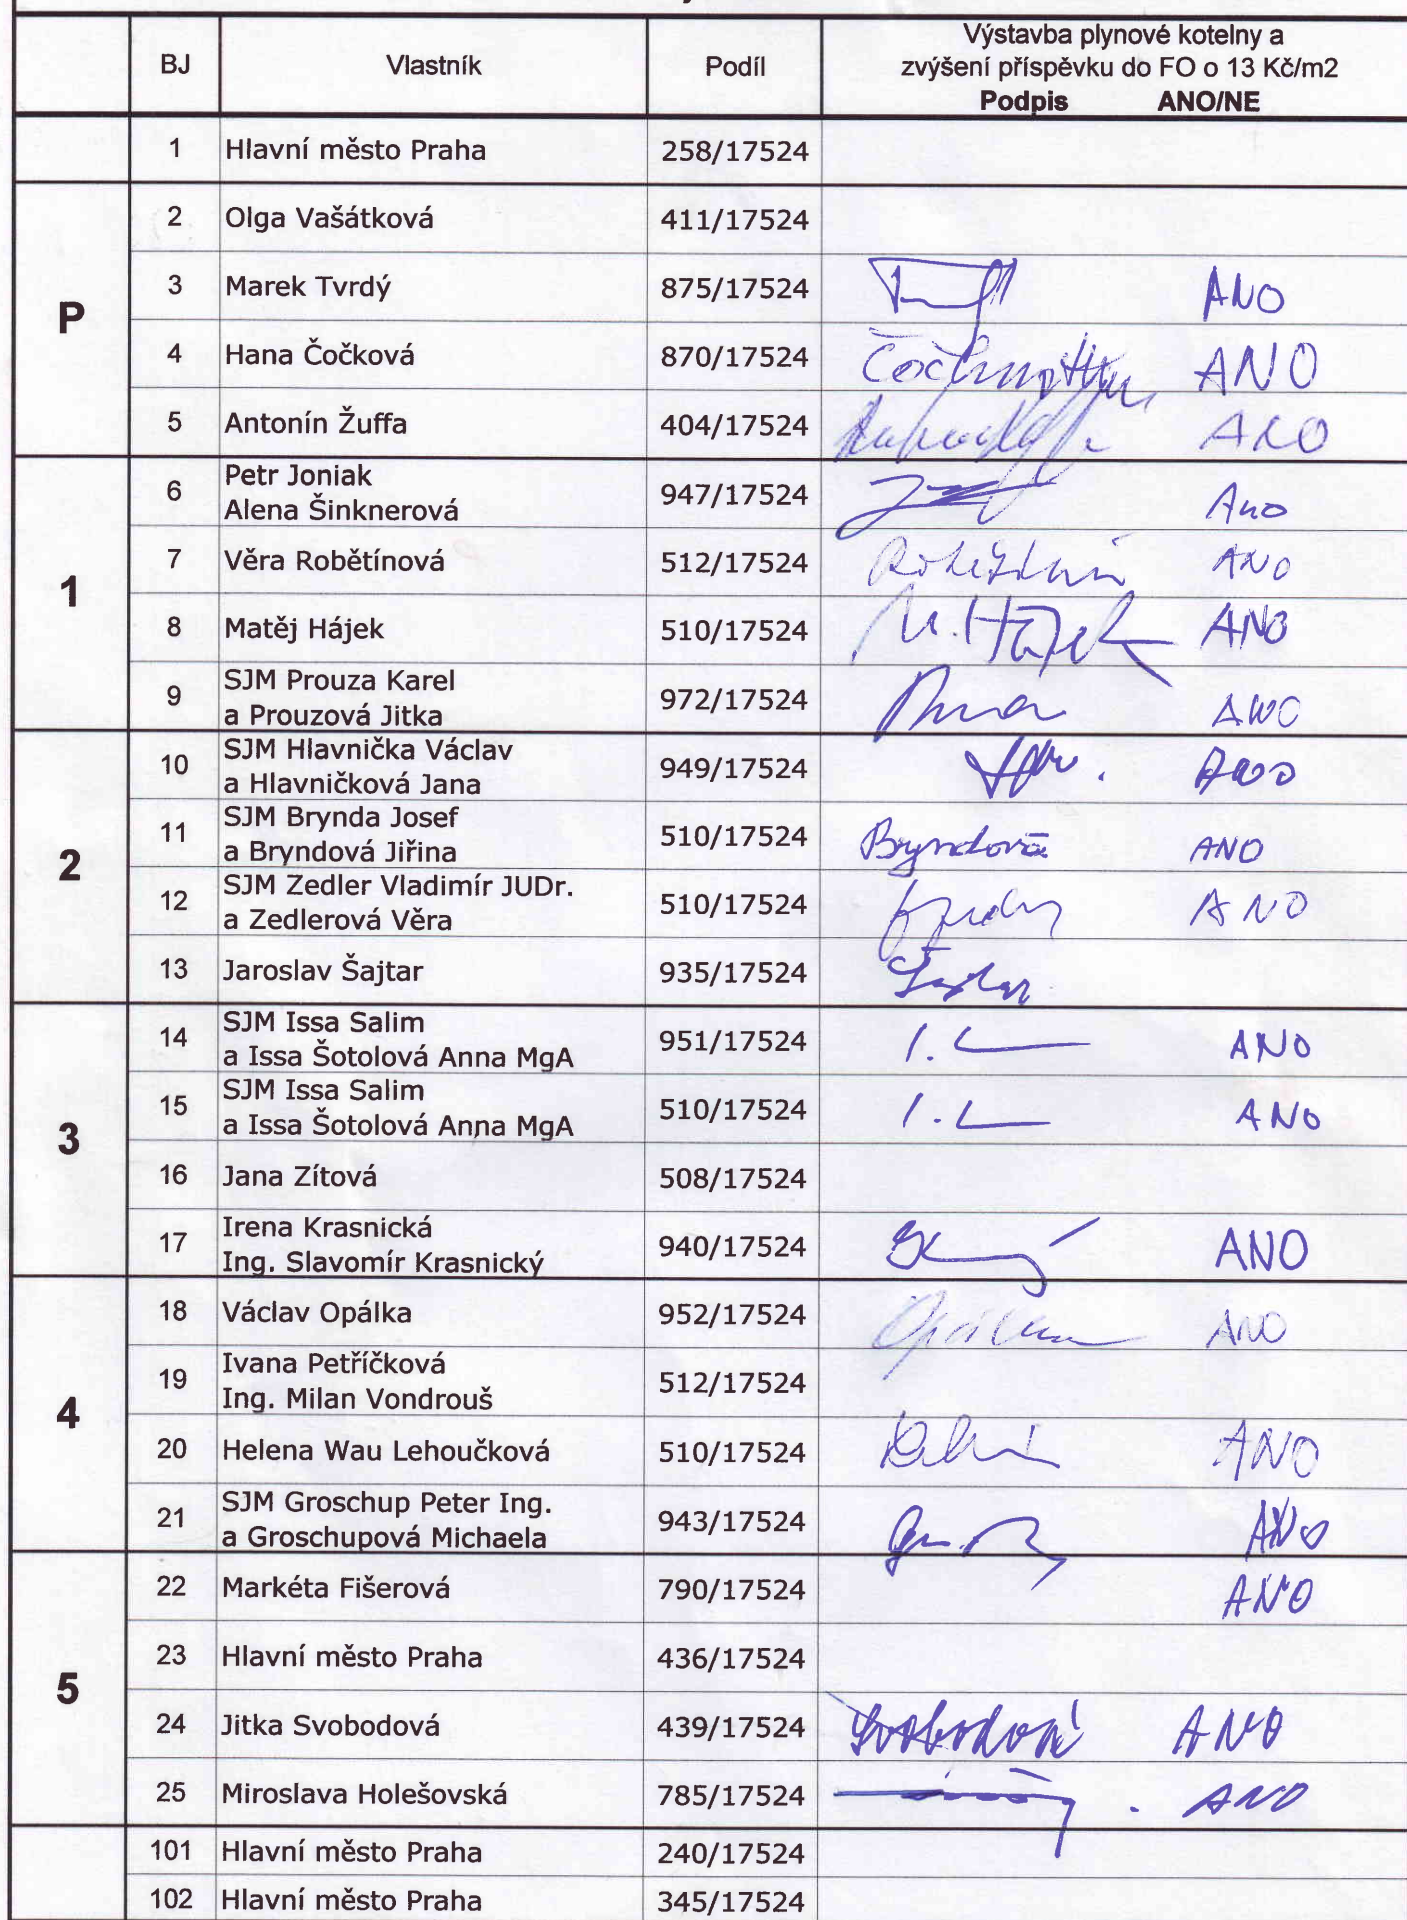 BJ Vlastník Podíl Výstavba plynové kotelny a
zvýšení příspěvku do FO o 13 Kč/m2
Podpis ANO/NE
1 Hlavní město Praha 258/17524
P
2 Olga Vašátková 411/17524
3 Marek Tvrdý 875/17524 ANO
4 Hana Čočková 870/17524 ANO
5 Antonín Žuffa 404/17524 ANO
1
6 Petr Joniak
Alena Šinknerová 947/17524 Ano
7 Věra Robětínová 512/17524 ANO
8 Matěj Hájek 510/17524 M. Hájek ANO
9 SJM Prouza Karel
a Prouzová Jitka 972/17524 ANO
2
10 SJM Hlavnička Václav
a Hlavničková Jana 949/17524 ANO
11 SJM Brynda Josef
a Bryndová Jiřina 510/17524 Bryndová ANO
12 SJM Zedler Vladimír JUDr.
a Zedlerová Věra 510/17524 ANO
13 Jaroslav Šajtar 935/17524
3
14 SJM Issa Salim
a Issa Šotolová Anna MgA 951/17524 ANO
15 SJM Issa Salim
a Issa Šotolová Anna MgA 510/17524 ANO
16 Jana Zítová 508/17524
17 Irena Krasnická
Ing. Slavomír Krasnický 940/17524 ANO
4
18 Václav Opálka 952/17524 ANO
19 Ivana Petříčková
Ing. Milan Vondrouš 512/17524
20 Helena Wau Lehoučková 510/17524 ANO
21 SJM Groschup Peter Ing.
a Groschupová Michaela 943/17524 ANO
5
22 Markéta Fišerová 790/17524 ANO
23 Hlavní město Praha 436/17524
24 Jitka Svobodová 439/17524 Svobodová ANO
25 Miroslava Holešovská 785/17524 ANO
101 Hlavní město Praha 240/17524
102 Hlavní město Praha 345/17524